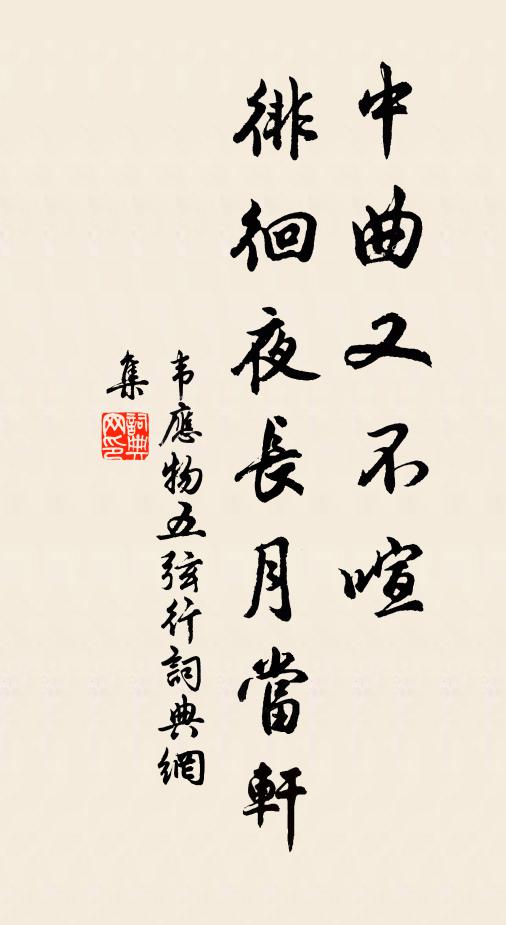 中曲又不喧
徘徊夜長月當軒
韦應物五弦行詞典網
集
詞典网印